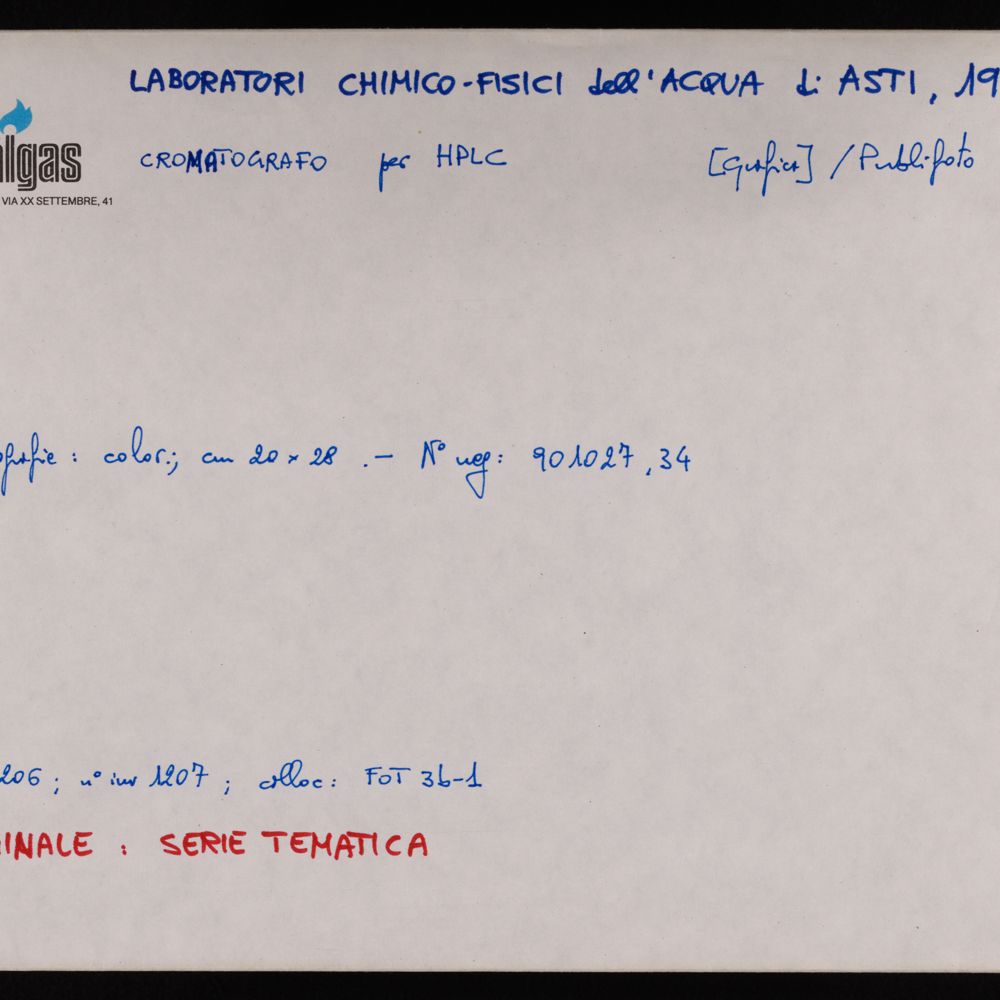 LABORATORI CHIMICO-FISICI dell'ACQUA di ASTI, 19
lgas
CROMATOGRAFO per HPLC [Grafica] / Publifoto
VIA XX SETTEMBRE, 41
color.; cm 20 x 28 .- N° neg: 901027,34
206; n° inv 1207; colloc: FOT 3b-1
INALE : SERIE TEMATICA